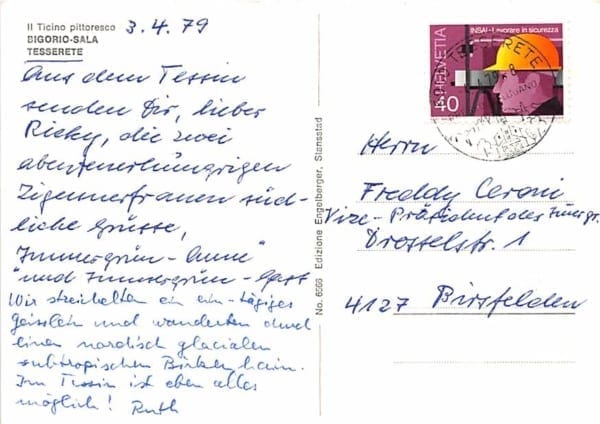 Il Ticino pittoresco
BIGORIO-SALA
TESSERETE
3.4.79
Aus dem Tessin
senden Dir, lieber
Ricky, die zwei
abenteuerhungrigen
Zigeunerfrauen süd-
liche Grüsse,
Immergrün-Anne
"und Immergrün-Gast
Wir streichelten ein ein-tägiges
Geisslein und wanderten durch
einen nordisch glacialen
subtropischen Birkenhain.
Im Tessin ist eben alles
möglich! Ruth
No. 6566 Edizione Engelberger, Stansstad
INSAI-Lavorare in sicurezza
HELVETIA
40
TESSERETE
LUGANO
Herrn
Freddy Ceroni
Vize-Präsident des
Drosselstr. 1
4127 Birsfelden